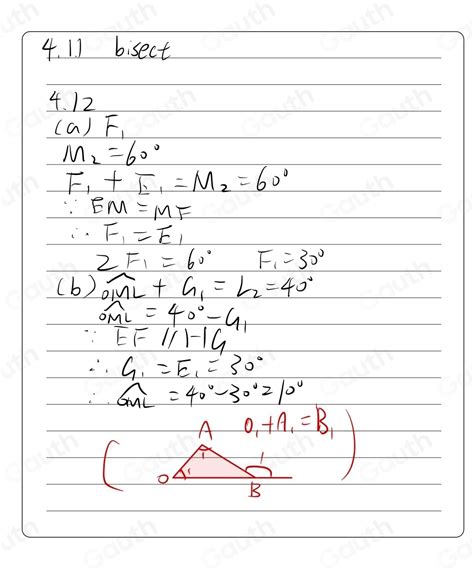 4.11 bisect
4.12
(a) F₁
M₂ = 60°
F₁ + E₁ = M₂ = 60°
∵ EM = MF
∴ F₁ = E₁
2F₁ = 60° F₁ = 30°
(b) OM̂L + G₁ = L₂ = 40°
OM̂L = 40° - G₁
∵ EF // HG
∴ G₁ = E₁ = 30°
∴ GM̂L = 40° - 30° = 10°
O₁ + A₁ = B₁
A
1
O
1
1
B